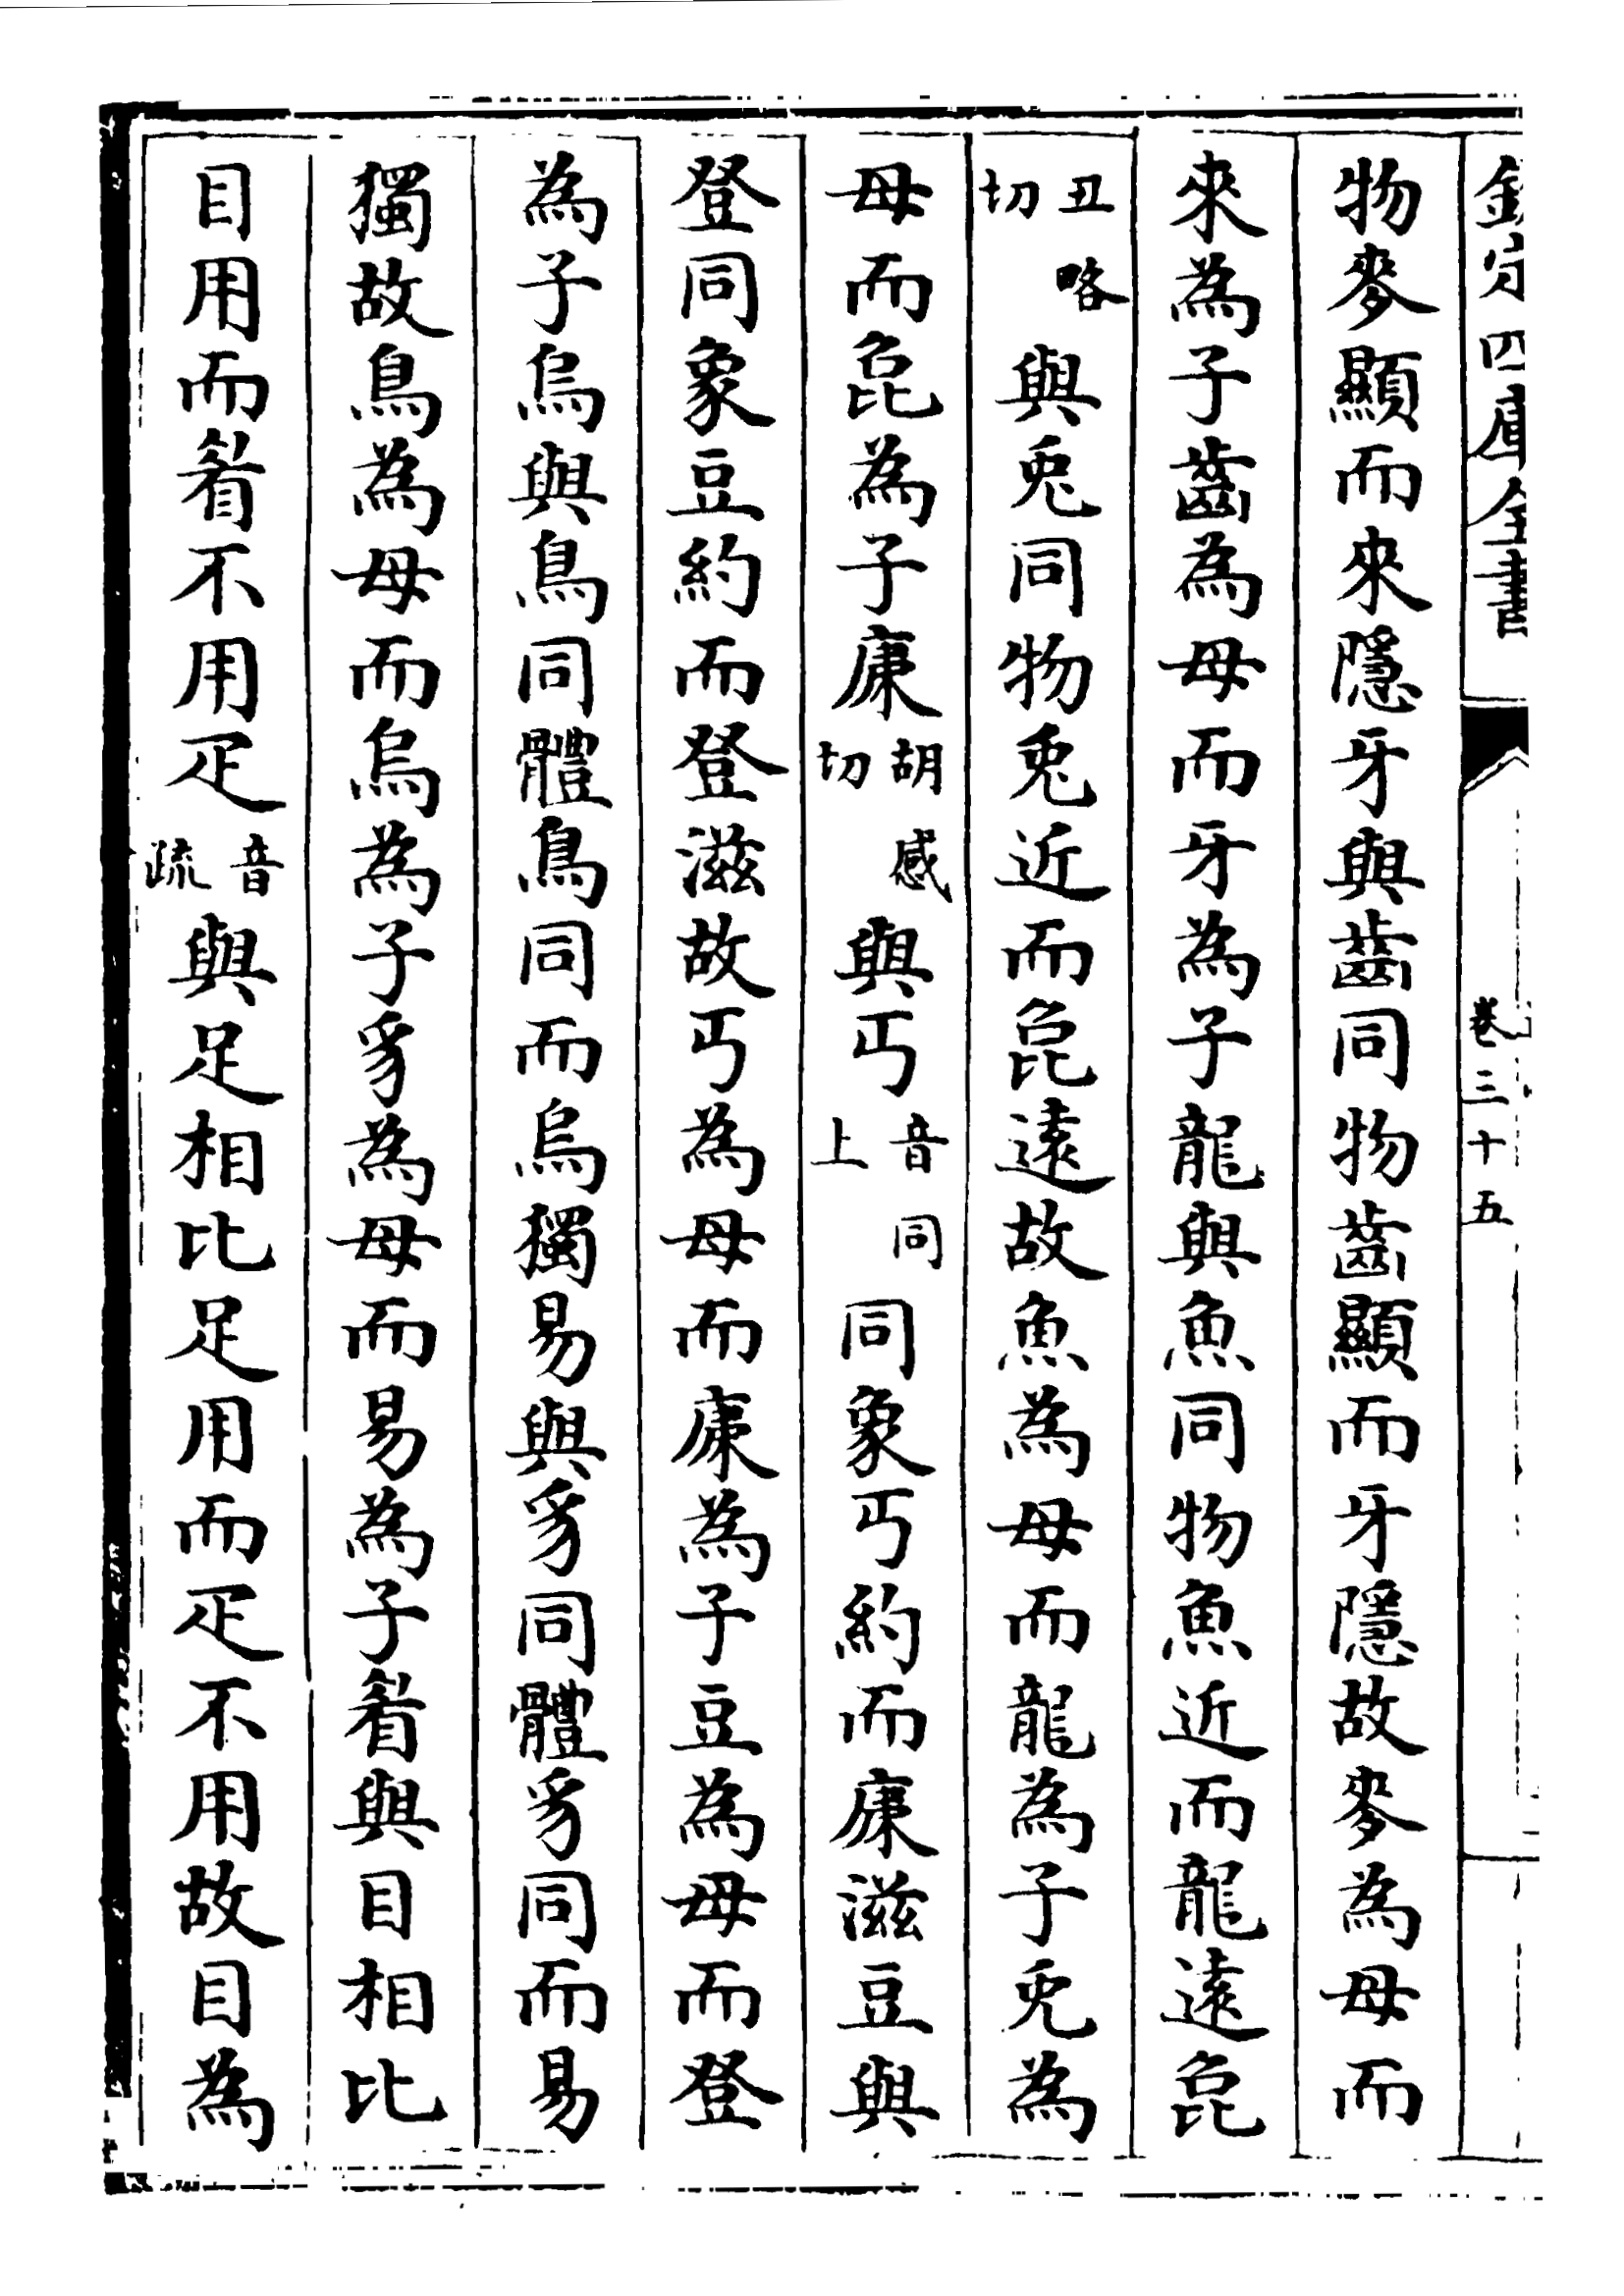 欽定四庫全書 卷三十五
物麥顯而來隱牙與齒同物齒顯而牙隱故麥為母而
來為子齒為母而牙為子龍與魚同物魚近而龍遠㲋
丑略切與兎同物兎近而㲋遠故魚為母而龍為子兎為
母而㲋為子胡感切與丏音同上同象丏約而滋豆與
登同象豆約而登滋故丏為母而為子豆為母而登
為子烏與鳥同體鳥同而烏獨易與豸同體豸同而易
獨故鳥為母而烏為子豸為母而易為子睂與目相比
目用而睂不用疋音疏與足相比足用而疋不用故目為